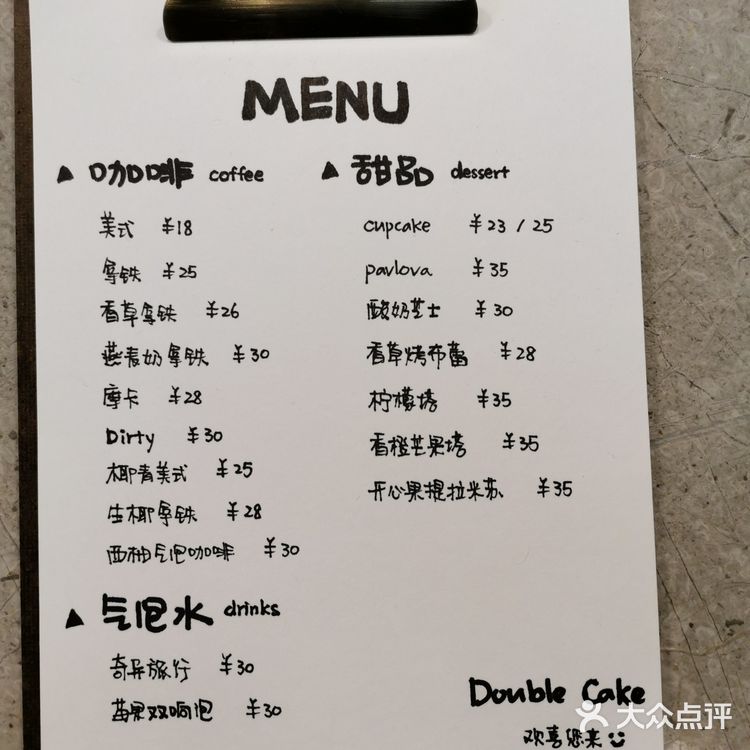 MENU
▲ 咖啡 coffee
美式 ¥18
拿铁 ¥25
香草拿铁 ¥26
燕麦奶拿铁 ¥30
摩卡 ¥28
Dirty ¥30
椰青美式 ¥25
生椰拿铁 ¥28
西柚气泡咖啡 ¥30
▲ 气泡水 drinks
奇异旅行 ¥30
莓果双响泡 ¥30
▲ 甜品 dessert
cupcake ¥23 / 25
pavlova ¥35
酸奶芝士 ¥30
香草烤布蕾 ¥28
柠檬塔 ¥35
香橙芒果塔 ¥35
开心果提拉米苏 ¥35
Double Cake
欢喜您来
大众点评